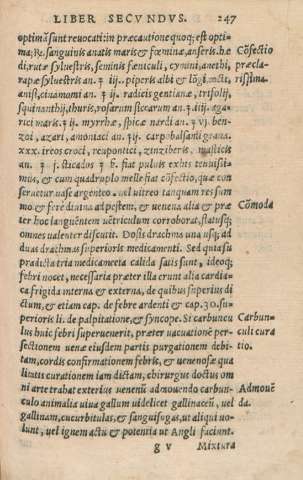 LIBER SECVNDVS. 247
optimã sunt reuocati: in præcautione quoq; est opti-
ma; ℞. sanguinis anatis maris & fœminæ, anseris. hæ
di, rutæ syluestris, seminis fœniculi, cymini, anethi,
rapæ syluestris an. ʒ iij.. piperis albi &
anisi, cinamomi an. ʒ ij. radicis gentianæ, trifolij,
squinanthij, thuris, rosarum siccarum an. ʒ. iiij. aga-
rici maris. ʒ ij. myrrhæ, spicæ nardi an. ʒ vj. ben-
zoi, azari, amoniaci an. ʒ ij. carpobalsami grana.
xxx. ireos croci, reupontici, zinziberis, masticis
an. ʒ sticados ʒ fiat puluis exhis tenuissi-
mus, & cum quadruplo melle fiat cõfectio, quæ con
seruetur uase argenteo. uel uitreo tanquam res sum
mo & fere diuina ad pestem, & uenena alia & præ
ter hoc languentem uẽtriculum corroborat, flatusq;
omnes ualenter discutit. Dosis drachma una usq; ad
duas drachmas superioris medicamenti. Sed quia su
prædicta tria medicamenta calida satis sunt, ideoq;
febri nocet, necessaria præter illa erunt alia cardia-
ca frigida interna & externa, de quibus superius di
ctum, & etiam cap. de febre ardenti & cap. 30. su-
perioris li. de palpitatione, & syncope. Si carbuncu
lus huic febri superuenerit, præter uacuationẽ per-
sectionem uenæ eiusdem partis purgationem debi-
tam, cordis confirmationem febris, & uenenosæ qua
litatis curationem iam dictam, chirurgus doctus om
ni arte trahat exterius uenenũ admouendo carbun-
culo animalia uiua gallum uidelicet gallinaceũ, uel
gallinam, cucurbitulas, & sanguisugas, ut aliqui uo-
lunt, uel ignem actu & potentia ut Angli faciunt.
g v Mixtura
Cõfectio
præcla-
rissima.
Cõmoda
Carbun-
culi cura
tio.
Admouẽ
da.